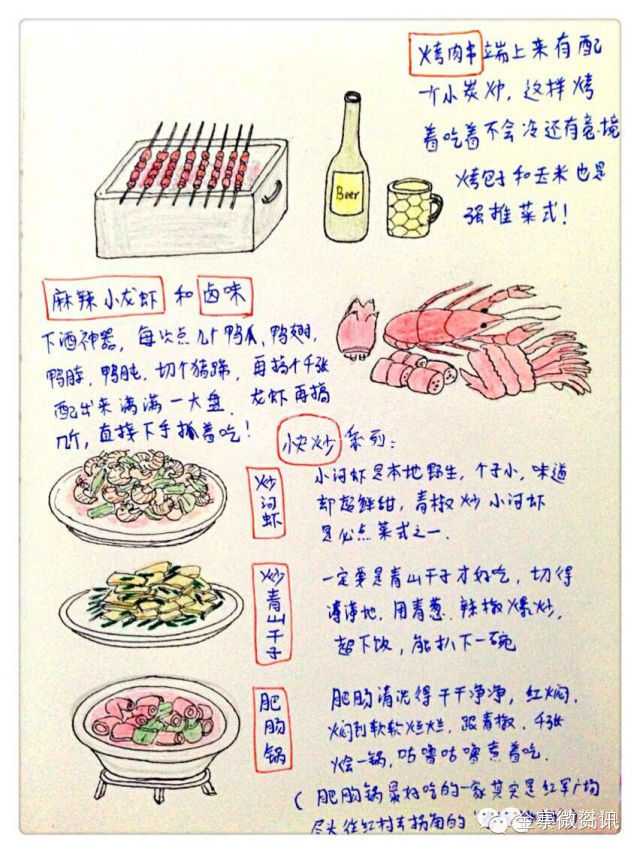 烤肉串端上来有配
个小炭炉,这样烤
着吃着不会冷还有意境
烤包子和玉米也是
强推菜式!
Beer
麻辣小龙虾和卤味
下酒神器,每次点几个鸭爪,鸭翅,
鸭脖,鸭肫,切个猪蹄,再搞个千张
配出来满满一大盘,龙虾再搞
几斤,直接下手抓着吃!
快炒系列:
炒河虾
小河虾是本地野生,个子小,味道
却超鲜甜,青椒炒小河虾
是必点菜式之一.
炒青山干子
一定要是青山干子才好吃,切得
薄薄地.用青葱.辣椒爆炒,
超下饭,能扒下一碗
肥肠锅
肥肠清洗得干干净净,红焖,
焖到软软烂烂,跟青椒.千张
烩一锅,咕噜咕噜煮着吃.
(肥肠锅最好吃的一家其实是红军广场
尽头往红村去拐角的
金寨微资讯